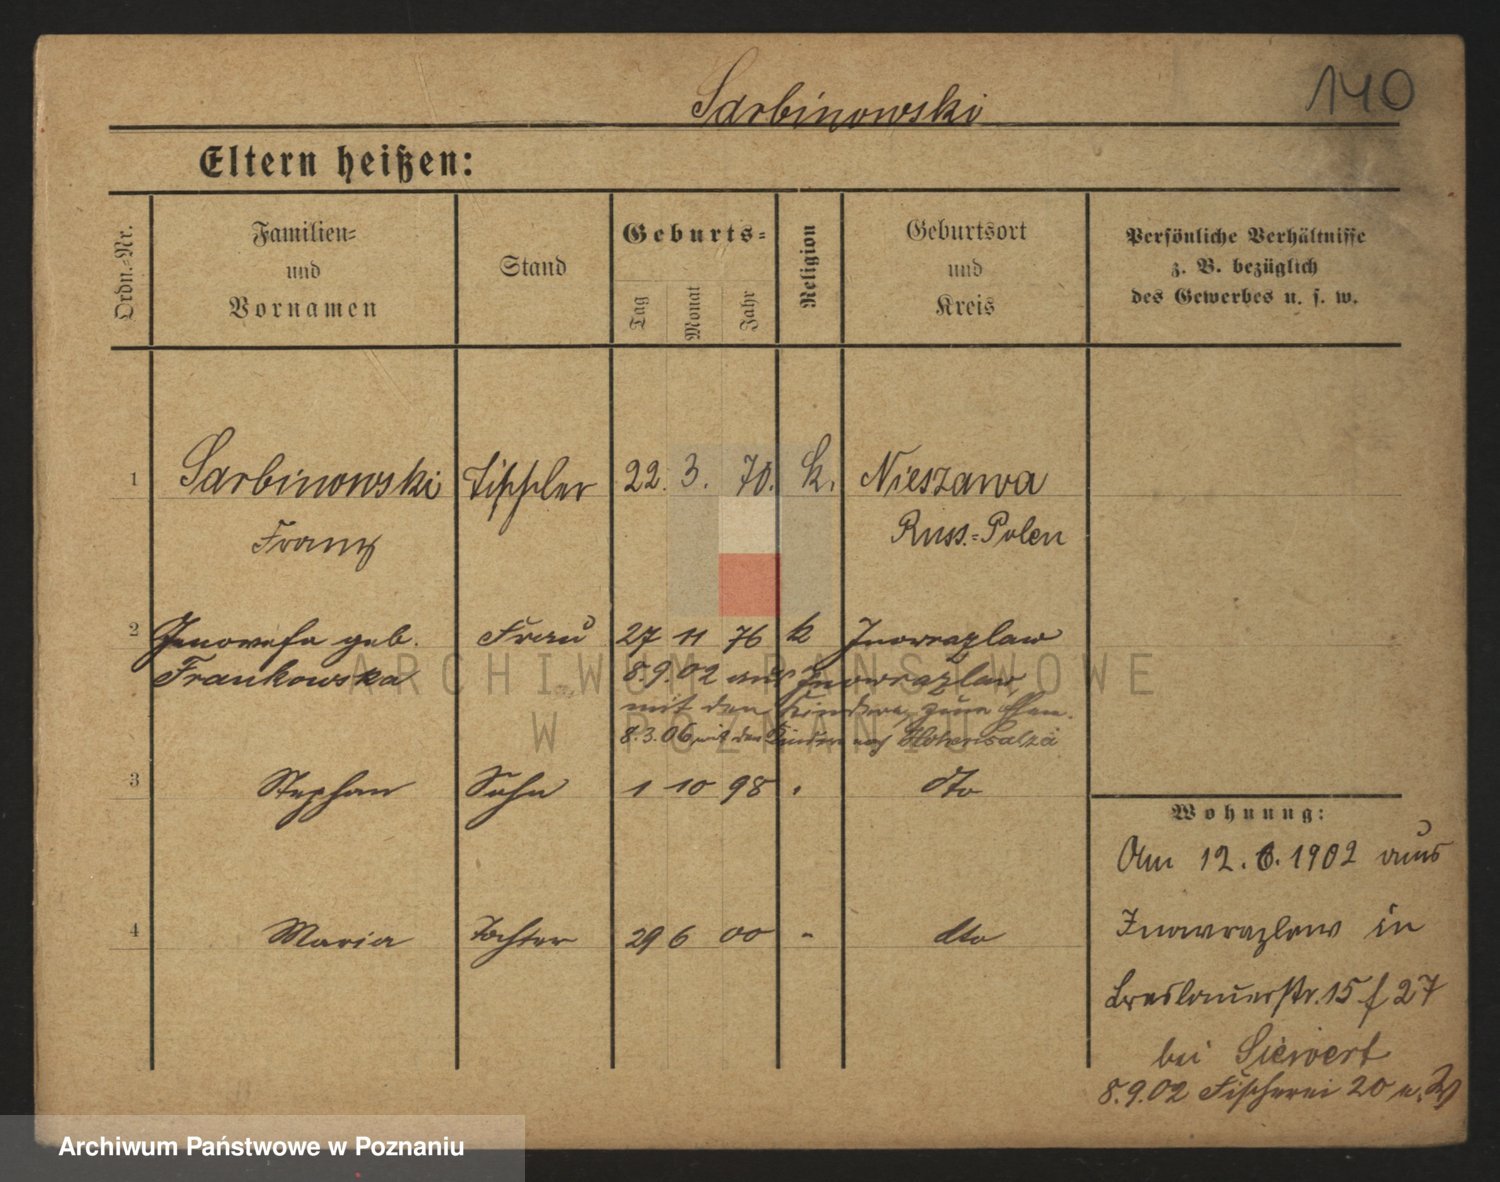 140
Sarbinowski
Eltern heißen:
Ordn.-Nr.
Familien-
und
Vornamen
Stand
Geburts-
Tag
Monat
Jahr
Religion
Geburtsort
und
Kreis
Persönliche Verhältnisse
z. B. bezüglich
des Gewerbes u. s. w.
1 Sarbinowski Tischler 22. 3. 70. k. Nieszawa
Franz Russ.-Polen
2 Genovefa geb. Frau 27 11 76 k Inowrazlaw
Frankowska 8.9.02 aus Inowrazlaw,
mit den Kindern, zum
8.3.06 mit den Kindern nach Hohensalza
3 Stephan Sohn 1 10 98 . dto
4 Maria Tochter 29 6 00 - dto
Wohnung:
Am 12.6.1902 aus
Inowrazlaw in
Breslauerstr. 15 f 27
bei Siewert
8.9.02 Fischerei 20
ARCHIWUM PAŃSTWOWE
W POZNANIU
Archiwum Państwowe w Poznaniu